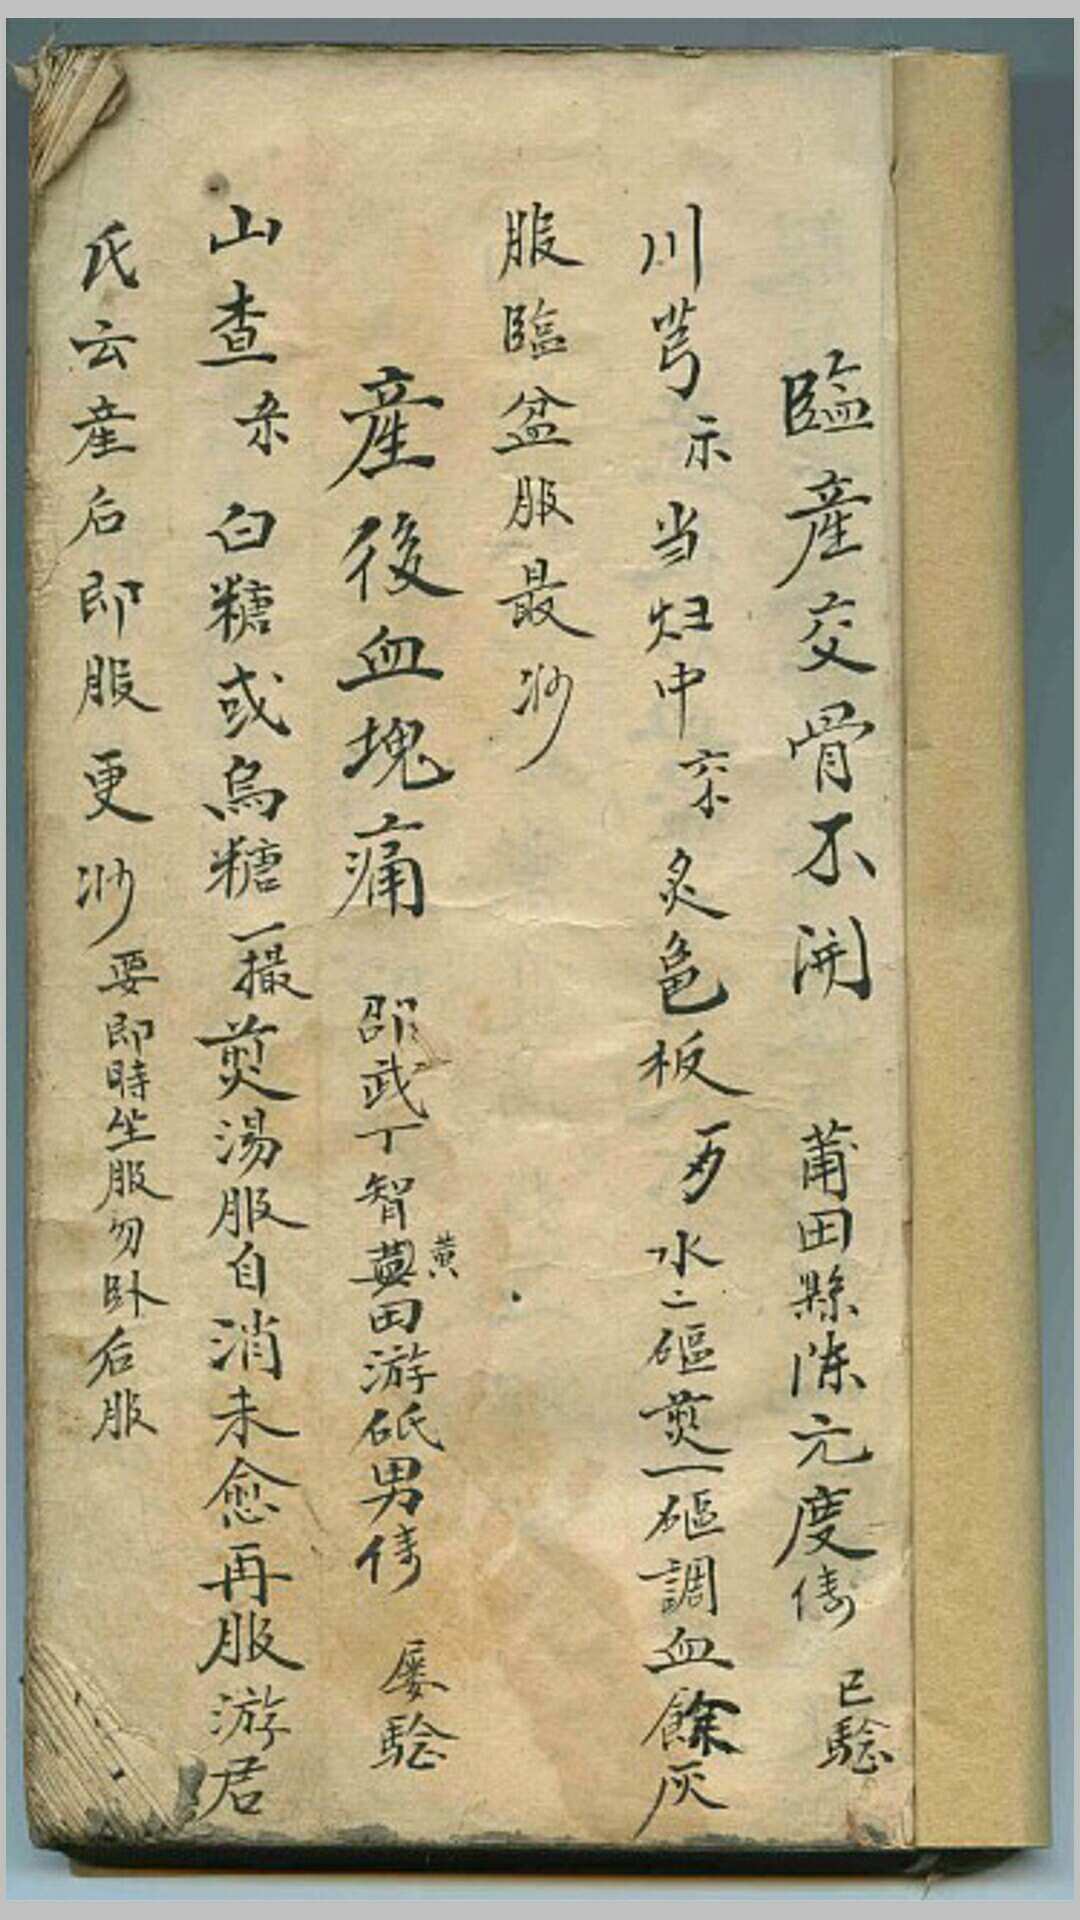 臨產交骨不開 莆田縣陳元度傳 已驗
川芎 当归中 炙龜板 水二碗煎一碗調血餘灰
服臨盆服最妙
產後血塊痛 邵武丁智黃田游砥男傳 屡驗
山查 白糖或烏糖一撮煎湯服自消未愈再服游君
氏云產后即服更妙 要即時坐服勿卧后服